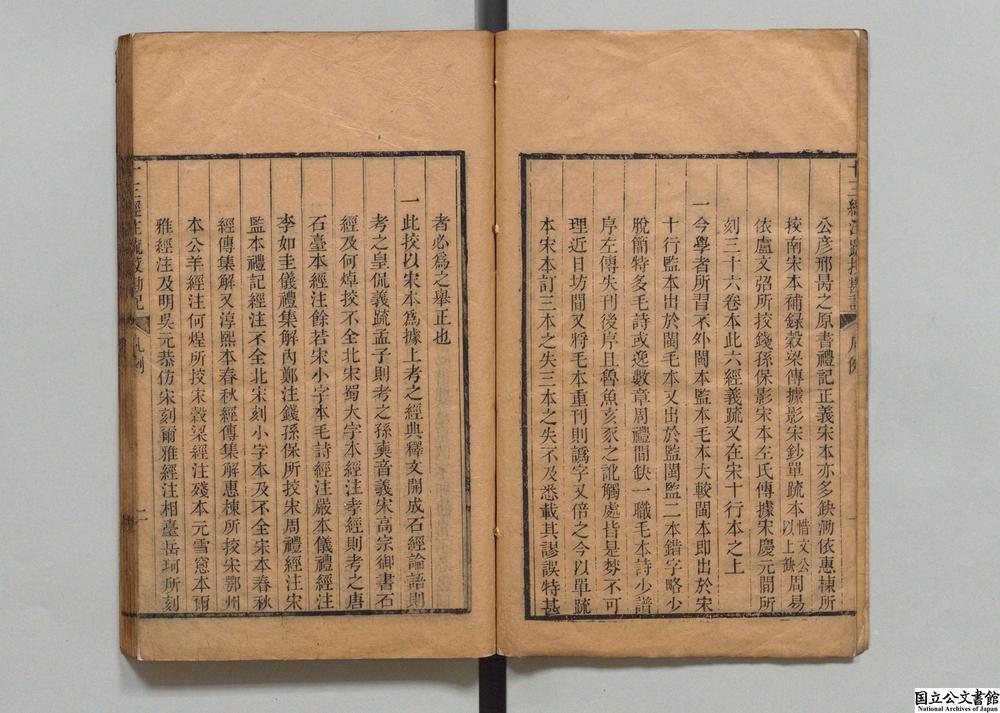 公彥邢昺之原書禮記正義宋本亦多缺泐依惠棟所
挍南宋本補錄穀梁傳據影宋鈔單䟽本惜文公以上缺周易
依盧文弨所挍錢孫保影宋本左氏傳據宋慶元間所
刻三十六卷本此六經義䟽又在宋十行本之上
一今學者所習不外閩本監本毛本大較閩本即出於宋
十行監本出於閩毛本又出於監閩監二本錯字略少
脫簡特多毛詩或逸數章周禮間缺一職毛本詩少譜
序左傳失刊後序且魯魚亥豕之訛觸處皆是棼不可
理近日坊間又將毛本重刋則譌字又倍之今以單䟽
本宋本訂三本之失三本之失不及悉載其謬誤特甚
者必爲之舉正也
一此挍以宋本爲據上考之經典釋文開成石經論語則
考之皇侃義䟽孟子則考之孫奭音義宋高宗御書石
經及何焯挍不全北宋蜀大字本經注孝經則考之唐
石臺本經注餘若宋小字本毛詩經注嚴本儀禮經注
李如圭儀禮集解內鄭注錢孫保所挍宋周禮經注宋
監本禮記經注不全北宋刻小字本及不全宋本春秋
經傳集解又淳熙本春秋經傳集解惠棟所挍宋鄂州
本公羊經注何煌所挍宋穀梁經注殘本元雪窻本爾
雅經注及明吳元恭仿宋刻爾雅經注相臺岳珂所刻
十三經注䟽挍勘記
凡例
二
国立公文書館
National Archives of Japan